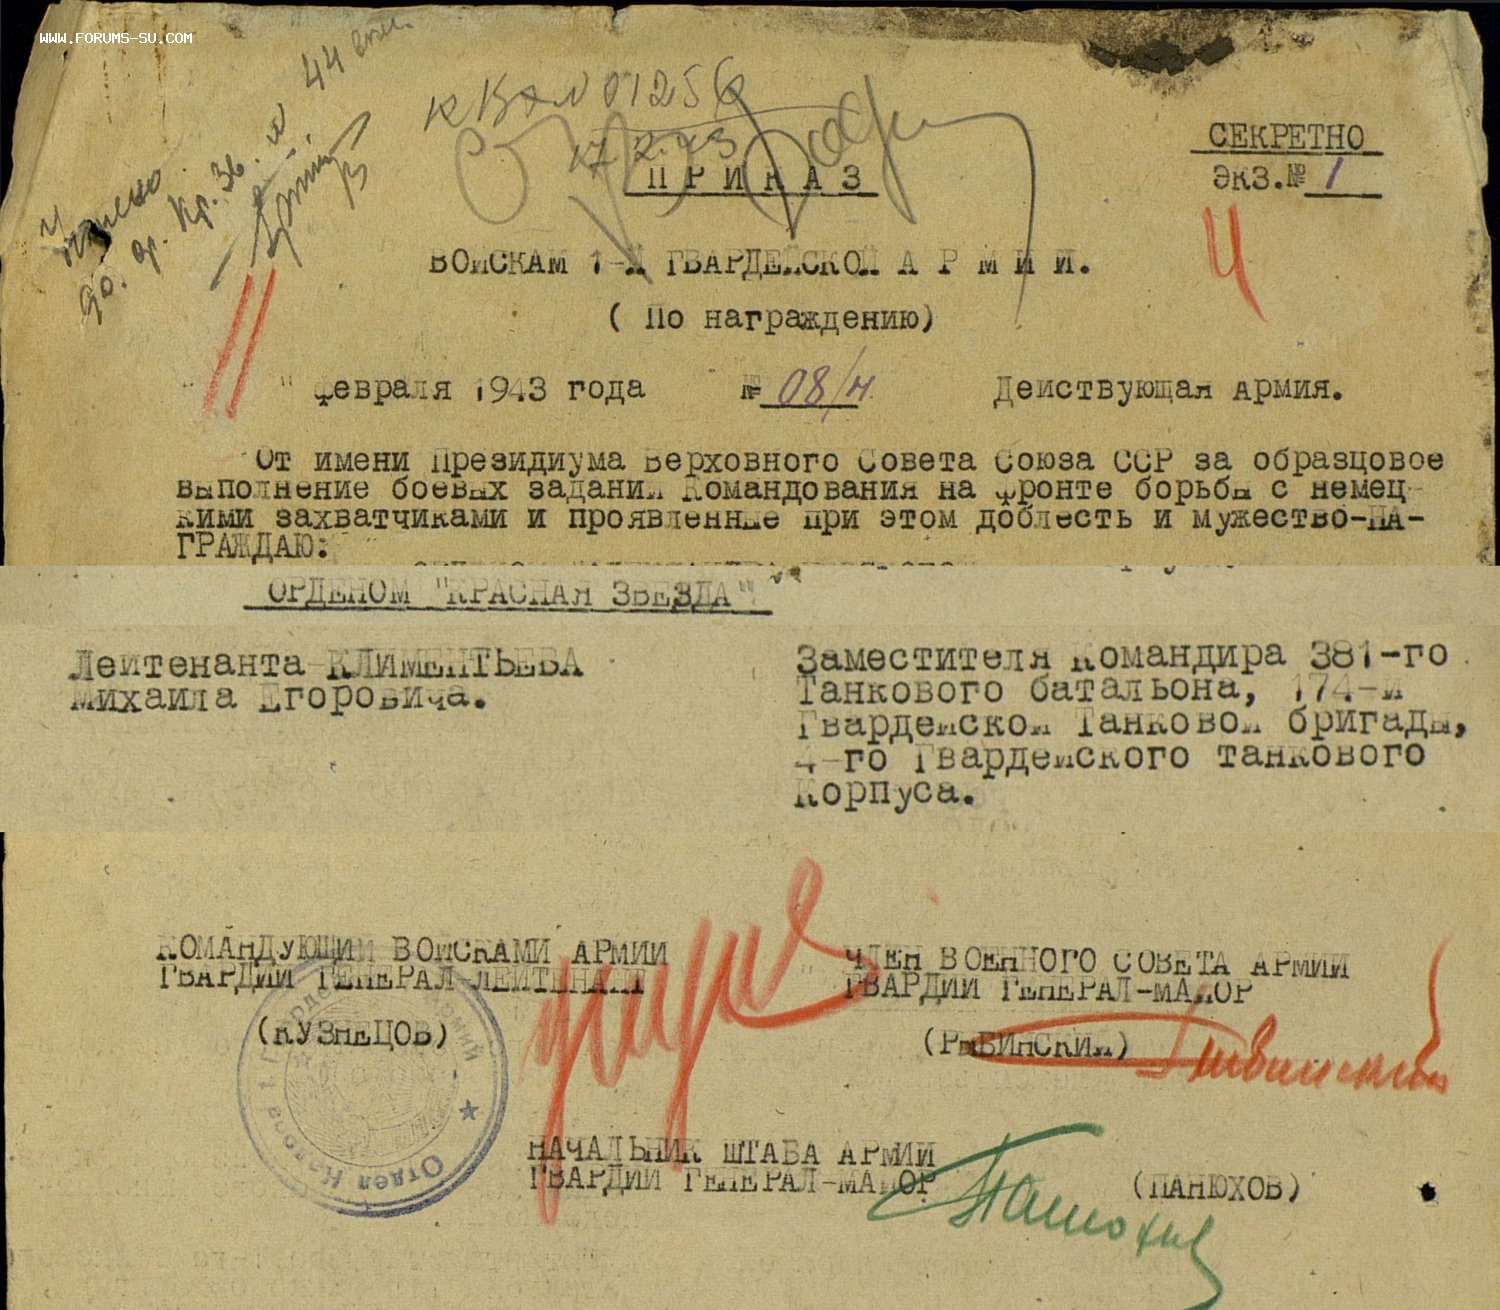 WWW.FORUMS-SU.COM
44
К Вх № 01256
17 2.43
СЕКРЕТНО
ЭКЗ.№ 1
П Р И К А З
4
ВОЙСКАМ 1-Й ГВАРДЕЙСКОЙ А Р М И И.
( По награждению)
11
" февраля 1943 года № 08/н Действующая Армия.
От имени Президиума Верховного Совета Союза ССР за образцовое
выполнение боевых заданий Командования на фронте борьбы с немец-
кими захватчиками и проявленные при этом доблесть и мужество-НА-
ГРАЖДАЮ:
ОРДЕНОМ "КРАСНАЯ ЗВЕЗДА"
Лейтенанта КЛИМЕНТЬЕВА
Михаила Егоровича.
Заместителя Командира 381-го
Танкового батальона, 174-й
Гвардейской Танковой бригады,
4-го Гвардейского танкового
Корпуса.
КОМАНДУЮЩИЙ ВОЙСКАМИ АРМИИ
ГВАРДИИ ГЕНЕРАЛ-ЛЕЙТЕНАНТ
(КУЗНЕЦОВ)
ЧЛЕН ВОЕННОГО СОВЕТА АРМИИ
ГВАРДИИ ГЕНЕРАЛ-МАЙОР
(РЫБИНСКИЙ)
Отдел
НАЧАЛЬНИК ШТАБА АРМИИ
ГВАРДИИ ГЕНЕРАЛ-МАЙОР
(ПАНЮХОВ)